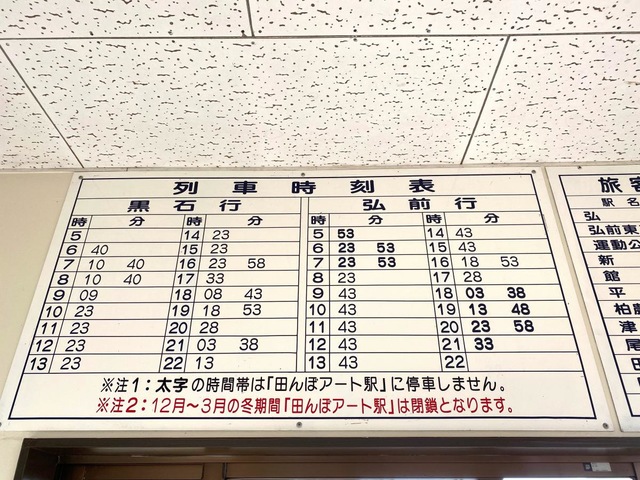 列車時刻表
黒石行 弘前行
時 分 時 分 時 分 時 分
5 14 23 5 53 14 43
6 40 15 23 6 23 53 15 43
7 10 40 16 23 58 7 23 53 16 18 53
8 10 40 17 33 8 23 17 28
9 09 18 08 43 9 43 18 03 38
10 23 19 18 53 10 43 19 13 48
11 23 20 28 11 43 20 23 58
12 23 21 03 38 12 43 21 33
13 23 22 13 13 43 22
※注1：太字の時間帯は「田んぼアート駅」に停車しません。
※注2：12月～3月の冬期間「田んぼアート駅」は閉鎖となります。
旅客
駅名
弘
弘前東
運動公
新
館
平
柏農
津
尾
田